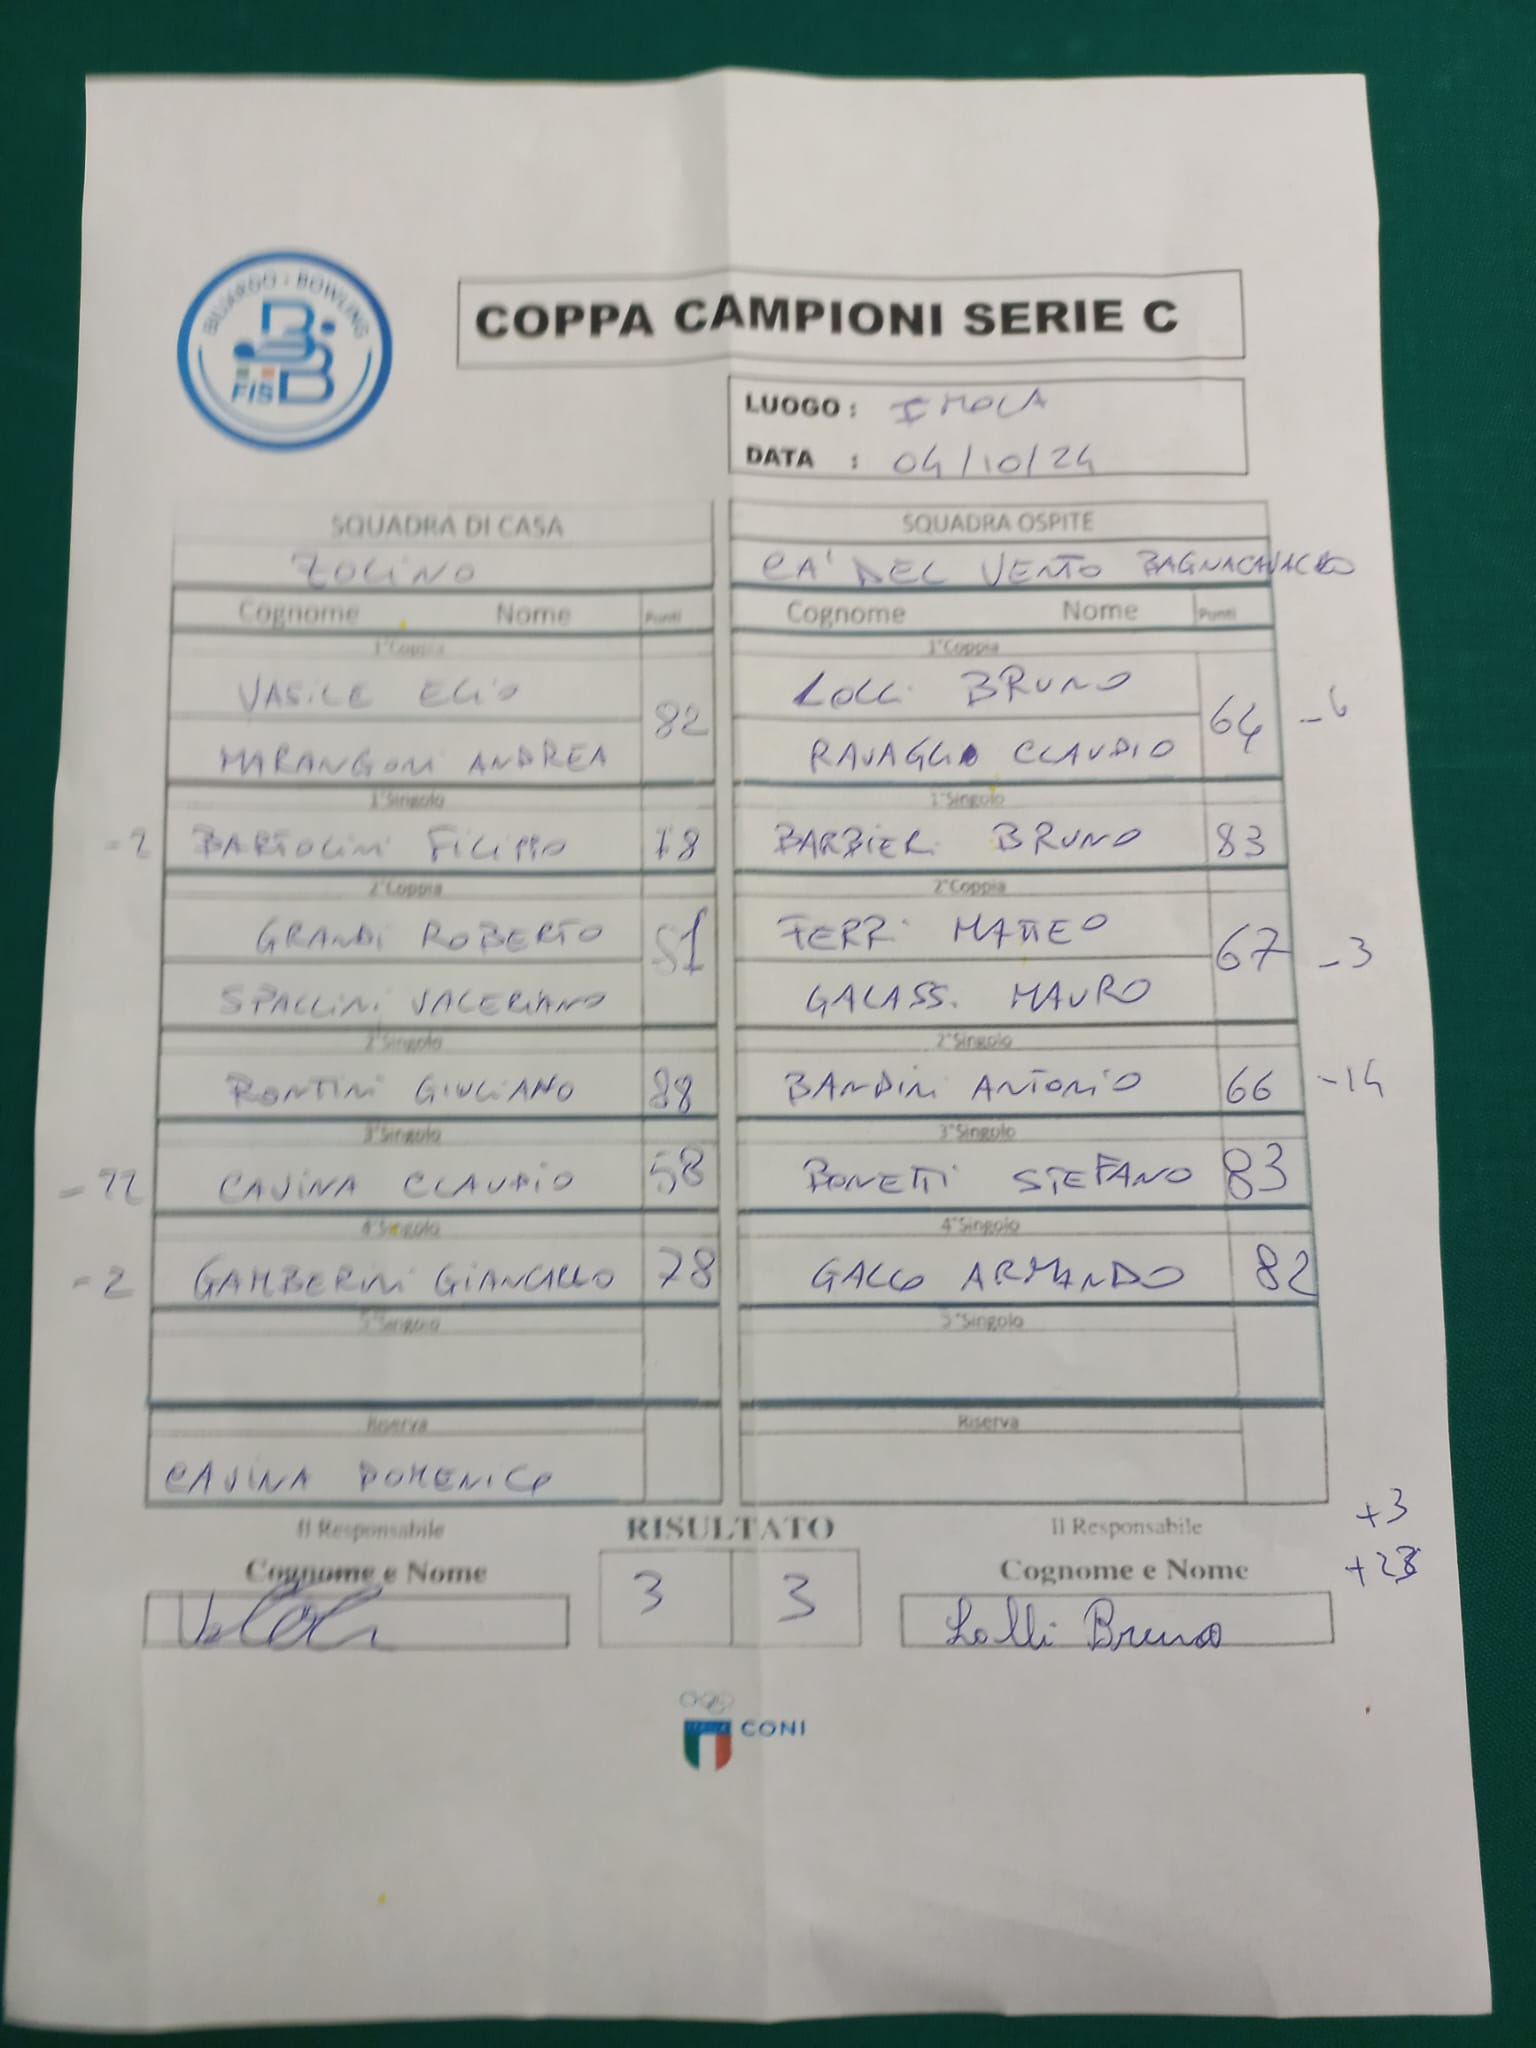 BILIARDO - BOWLING
FISBB
COPPA CAMPIONI SERIE C
LUOGO : IMOLA
DATA : 04/10/24
SQUADRA DI CASA SQUADRA OSPITE
ZOLINO CA' DEL VENTO BAGNACAVALLO
Cognome Nome Punti Cognome Nome Punti
1°Coppia 1°Coppia
VASILE ELIO 82 LOLLI BRUNO 64 -6
MARANGONI ANDREA RAVAGLIO CLAUDIO
1°Singolo 1°Singolo
-2 BARTOLINI FILIPPO 78 BARBIERI BRUNO 83
2°Coppia 2°Coppia
GRANDI ROBERTO 81 FERRI MATTEO 67 -3
SPALLINI VALERIANO GALASSI MAURO
2°Singolo 2°Singolo
RONTINI GIULIANO 88 BANDINI ANTONIO 66 -14
3°Singolo 3°Singolo
-22 CAVINA CLAUDIO 58 BONETTI STEFANO 83
4°Singolo 4°Singolo
-2 GAMBERINI GIANCARLO 78 GALLO ARMANDO 82
5°Singolo 5°Singolo
Riserva Riserva
CAVINA DOMENICO
+3
Il Responsabile RISULTATO Il Responsabile
Cognome e Nome Cognome e Nome +23
3 3 Lolli Bruno
ITALIA CONI